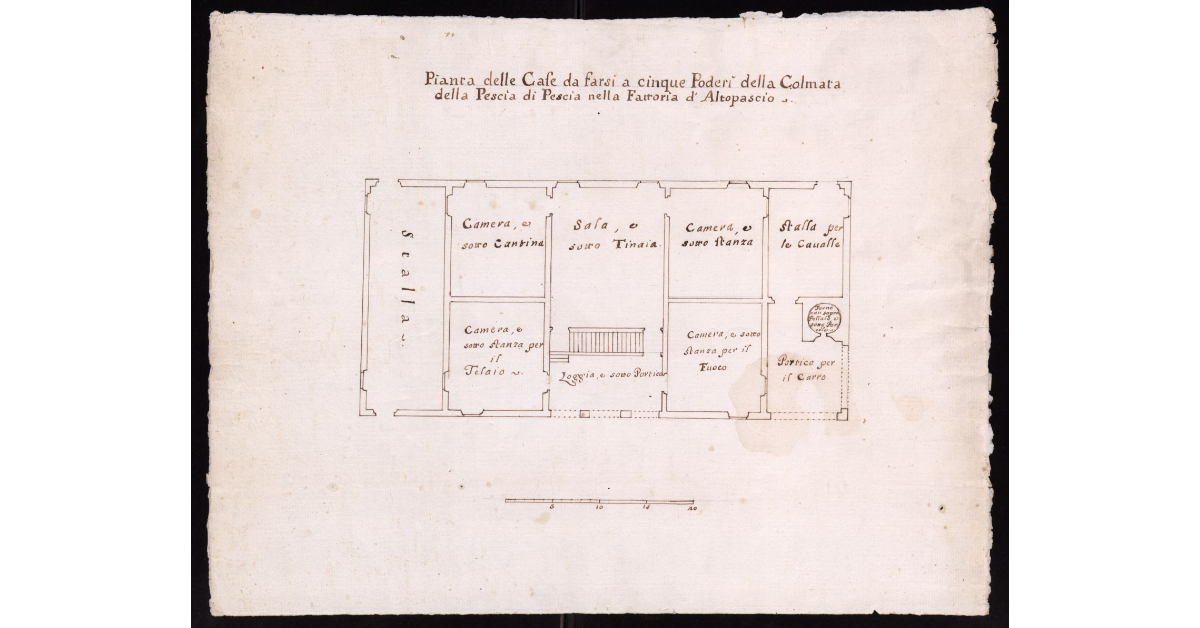 Pianta delle Case da farsi a cinque Poderi della Colmata
della Pescia di Pescia nella Fattoria d'Altopascio
Stalla
Camera, e
sotto Cantina
Sala, e
sotto Tinaia.
Camera, e
sotto stanza
Stalla per
le Cavalle
Camera, e
sotto stanza per
il
Telaio
Loggia, e sotto Portico
Camera, e sotto
stanza per il
Fuoco
Forno
con sopra
Pollaio e
sotto
Portico per
il Carro
5 10 15 20